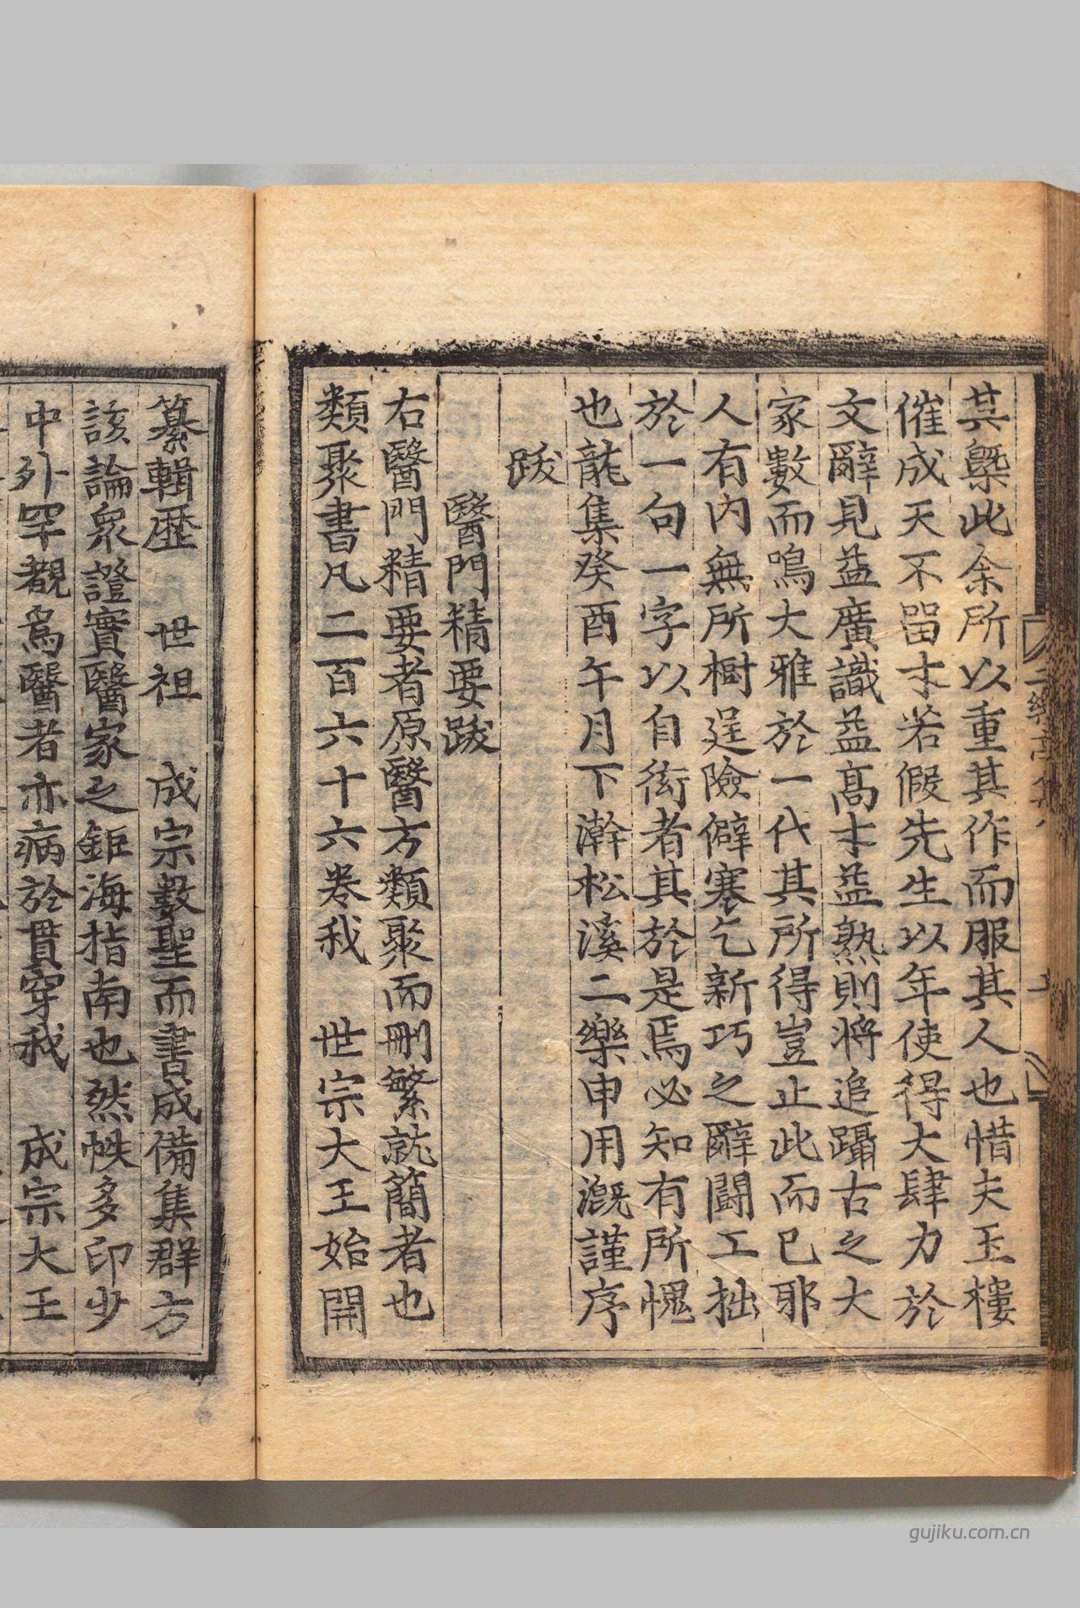 其槩此余所以重其作而服其人也惜夫玉樓
催成天不留才若假先生以年使得大肆力於
文辭見益廣識益高才益熟則將追躡古之大
家數而鳴大雅於一代其所得豈止此而已耶
人有內無所樹逞險僻蹇乞新巧之辭鬪工拙
於一句一字以自衒者其於是焉必知有所愧
也龍集癸酉午月下澣松溪二樂申用漑謹序
跋
醫門精要跋
右醫門精要者原醫方類聚而刪繁就簡者也
類聚書凡二百六十六卷我 世宗大王始開
纂輯歷 世祖 成宗數聖而書成備集群方
該論衆證實醫家之鉅海指南也然帙多印少
中外罕覩爲醫者亦病於貫穿我 成宗大王
gujiku.com.cn